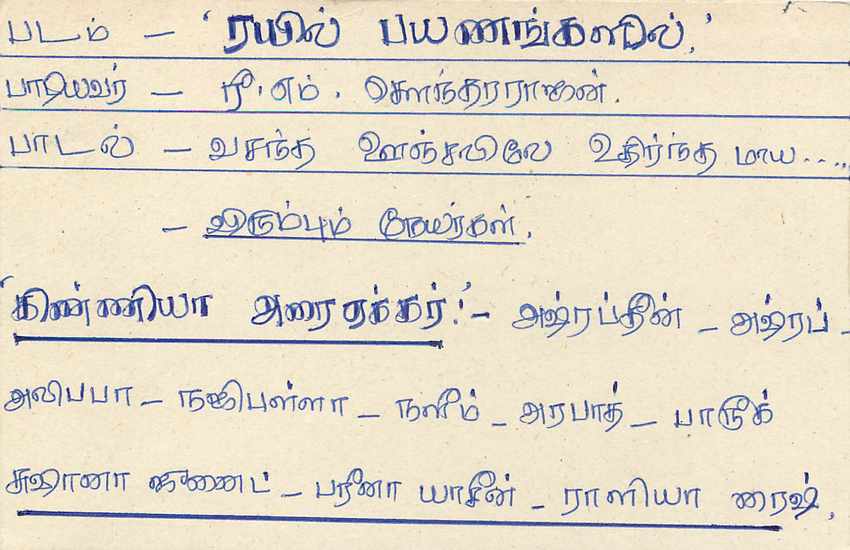 படம் - 'ரயில் பயணங்களில்,'
பாடியவர் - ரி.எம். சௌந்தரராஜன்.
பாடல் - வசந்த ஊஞ்சலிலே உதிர்ந்த மாய.....
- விரும்பும் நேயர்கள்.
'கிண்ணியா அரைஏக்கர்!' - அஷ்ரப்தீன் - அஷ்ரப் -
அலிபபா - நஜிபுள்ளா - நளீம் - அரபாத் - பாரூக்
சுஹானா ஜுனைட் - பரீனா யாசீன் - ராஸியா ரைஷ்,